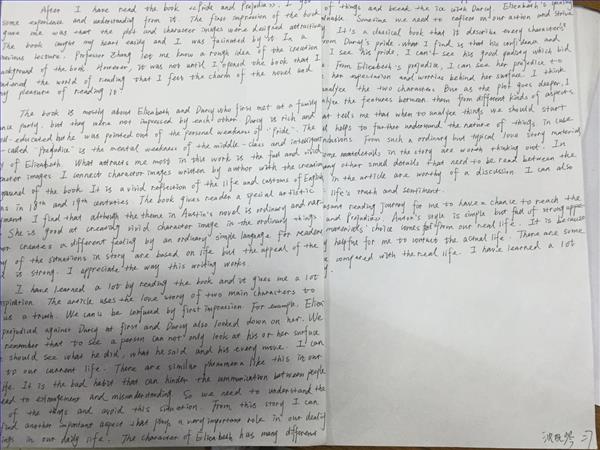 After I have read the book 《Pride and Prejudice》. I got
some experience and understanding from it. The first impression of the book
gave me was that the plot and character images were designed attractively
The book caught my heart easily and I was fascinated by it. In a
previous lecture, Professor Zhang let me know a rough idea of the creation
background of the book. However, it was not until I opened the book that I
entered the world of reading that I felt the charm of the novel and
my pleasure of reading it
The book is mostly about Elizabeth and Darcy who first met at a family
dance party, but they were not impressed by each other. Darcy is rich and
well-educated but he was pointed out of the personal weakness of "Pride". The
so-called "prejudice" is the mental weakness of the middle-class and intelligent
of Elizabeth. What attracts me most in this work is the full and vivid
character images. I connect character images written by author with the
background of the book. It is a vivid reflection of the life and customs of English
in 18th and 19th centuries. The book gives reader a special artistic
I find that although the theme in Austin's novel is ordinary and
She is good at creating vivid character image in the ordinary things
creates a different feeling by an ordinary simple language for readers
of the situations in story are based on life but the appeal of the
is strong. I appreciate the way this writing works.
I have learned a lot by reading the book and it gives me a lot
inspiration. The article uses the love story of two main characters to
us a truth. We can be confused by first impression. For example, Eliza
prejudiced against Darcy at first and Darcy also looked down on her. We
remember that to see a person can not only look at his or her surface
should see what he did, what he said and his every move. I can
to our current life. There are similar phenomena like this in our
life. It is the bad habit that can hinder the communication between people
lead to estrangement and misunderstanding. So we need to understand the
of the things and avoid this situation. From this story I can
find another important aspect that plays a very important role in our
things in our daily life. The character of Elizabeth has many different
of things and break the ice with Darcy. Elizabeth's
Sometime we need to reflect on our action and
It's a classical book that it describe every character
from Darcy's pride what I find is that his confidence and
I see his pride, I can't see his good
From Elizabeth's prejudice, I can see her prejudice to
her expectation and worries behind her surface. I think
the two characters. But as the plot goes deeper, I
the features between them from different kinds of aspects
tells me that when to analyse things we should start
helps to further understand the nature of things in case
from such a ordinary but typical love story materials
details in the story are worth thinking out. In
many other small details that need to be read between the
in the article are worthy of a discussion. I can also
life's truth and sentiment.
some reading journey for me to have a chance to reach the
and Prejudice》. Austin's style is simple but full of strong appeal
materials' choice comes from our real life. It is because
helpful for me to contact the actual life. There are some
compared with the real life. I have learned a lot